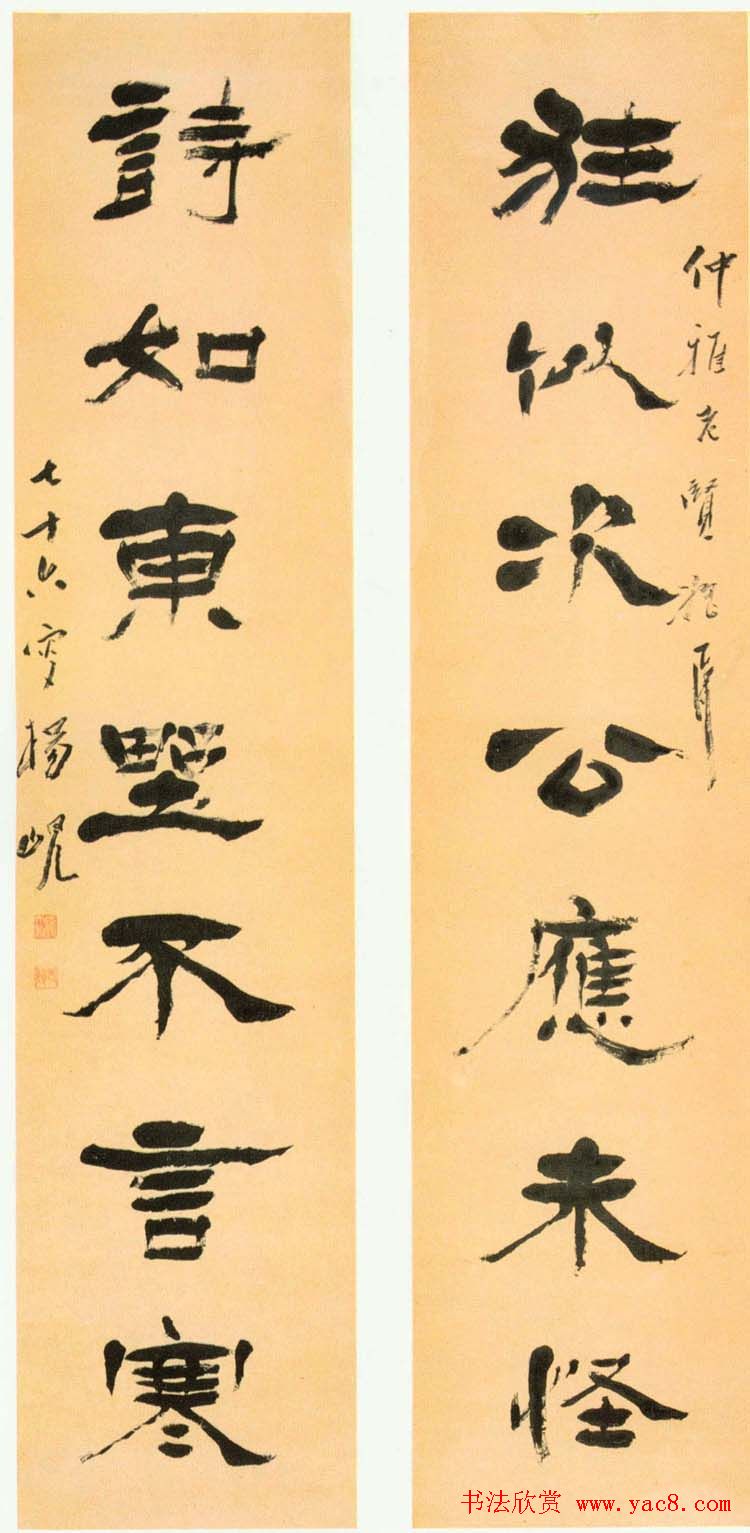 仲雅老賢
狂似次公應未怪
詩如東野不言寒
七十六叟楊峴
书法欣赏 www.yac8.com